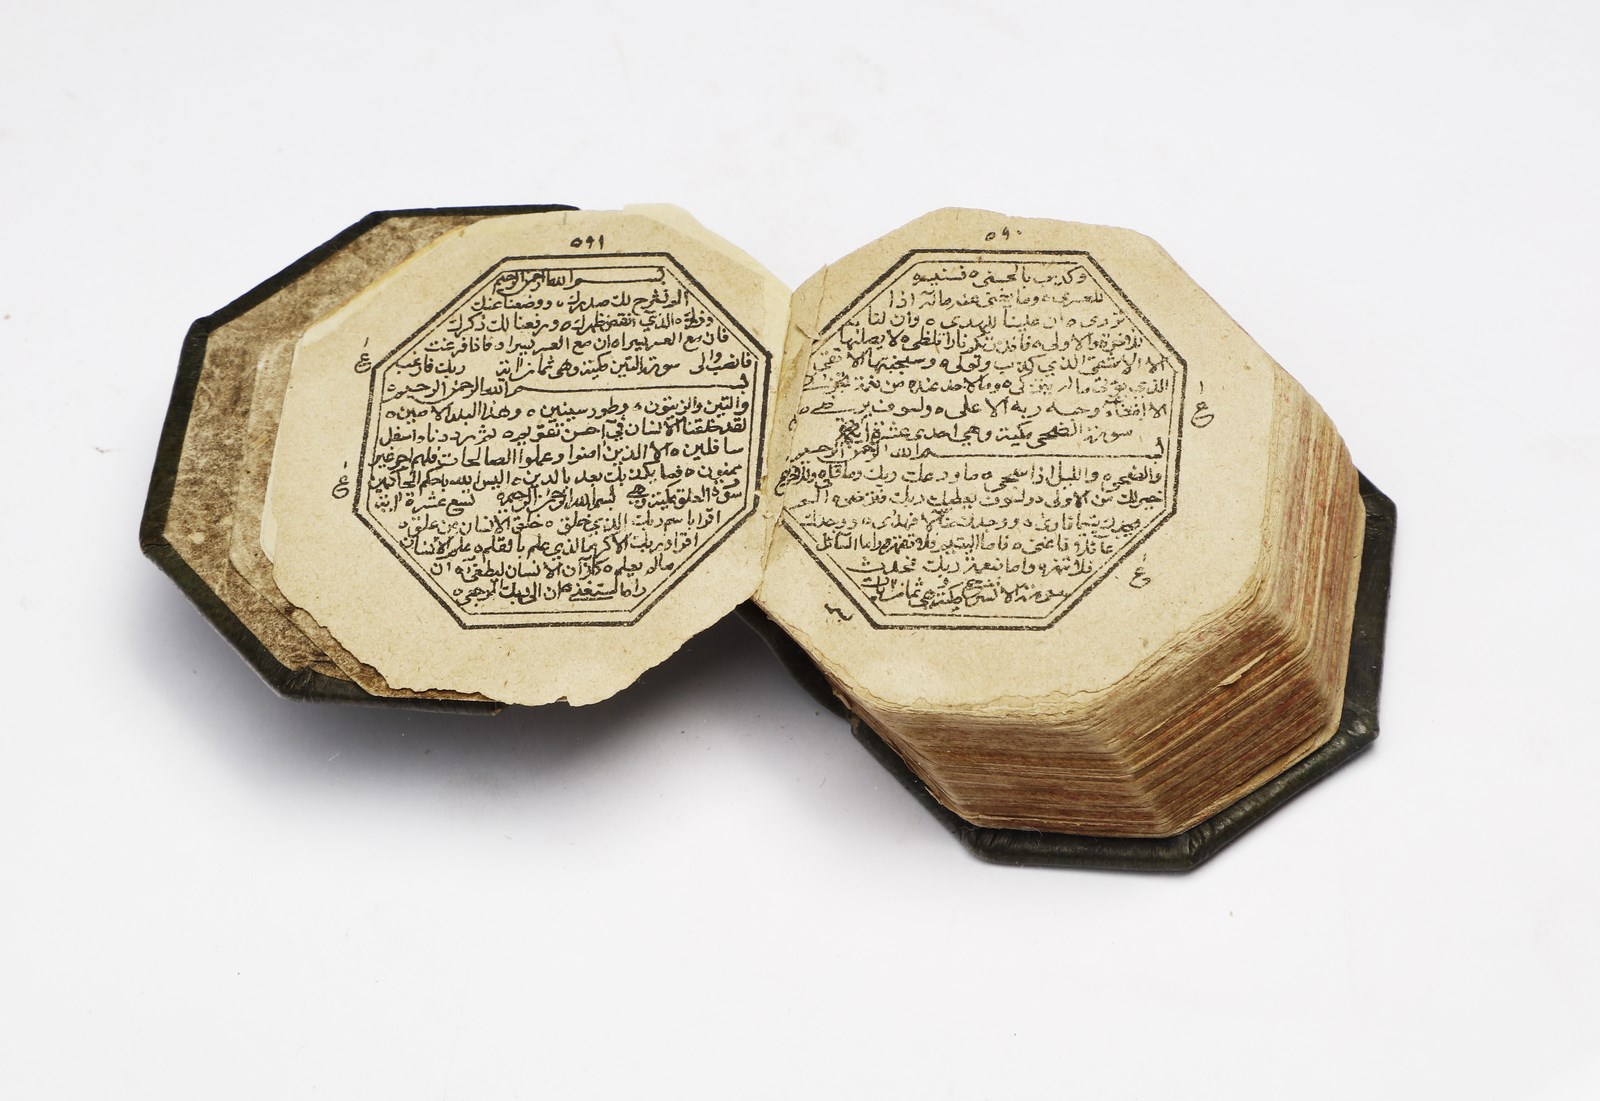 ٥٩٠
وكذب بالحسنى ه فسنيسره
للعسرى ه وما يغنى عنه ماله اذا
تردى ه ان علينا للهدى ه وان لنا
للاخرة والاولى ه فانذرتكم نارا تلظى ه لا يصلها
الا الاشقى الذي كذب وتولى ه وسيجنبها الاتقى
الذي يؤتى ماله يتزكى ه وما لاحد عنده من نعمة تجزى
الا ابتغاء وجه ربه الاعلى ه ولسوف يرضى ه
سورة الضحى مكية وهي احدى عشرة اية
بسم الله الرحمن الرحيم
والضحى ه والليل اذا سجى ه ما ودعك ربك وما قلى ه وللاخرة
خير لك من الاولى ه ولسوف يعطيك ربك فترضى ه الم
يجدك يتيما فاوى ه ووجدك ضالا فهدى ه ووجدك
عائلا فاغنى ه فاما اليتيم فلا تقهر ه واما السائل
فلا تنهر ه واما بنعمة ربك فحدث
سورة الانشرح مكية وهي ثمان ايات
ع
ع
٥٩١
بسم الله الرحمن الرحيم
الم نشرح لك صدرك ه ووضعنا عنك
وزرك ه الذي انقض ظهرك ه ورفعنا لك ذكرك
فان مع العسر يسرا ه ان مع العسر يسرا ه فاذا فرغت
فانصب والى ربك فارغب سورة التين مكية وهي ثمان اية
بسم الله الرحمن الرحيم ه
والتين والزيتون ه وطور سينين ه وهذا البلد الامين ه
لقد خلقنا الانسان في احسن تقويم ه ثم رددناه اسفل
سافلين ه الا الذين امنوا وعملوا الصالحات فلهم اجر غير
ممنون ه فما يكذبك بعد بالدين ه اليس الله باحكم الحاكمين
سورة العلق مكية وهي تسع عشرة اية بسم الله الرحمن الرحيم ه
اقرا باسم ربك الذي خلق ه خلق الانسان من علق ه
اقرا وربك الاكرم الذي علم بالقلم ه علم الانسان
ما لم يعلم ه كلا ان الانسان ليطغى ه ان
راه استغنى ه ان الى ربك الرجعى ه
ع
ع